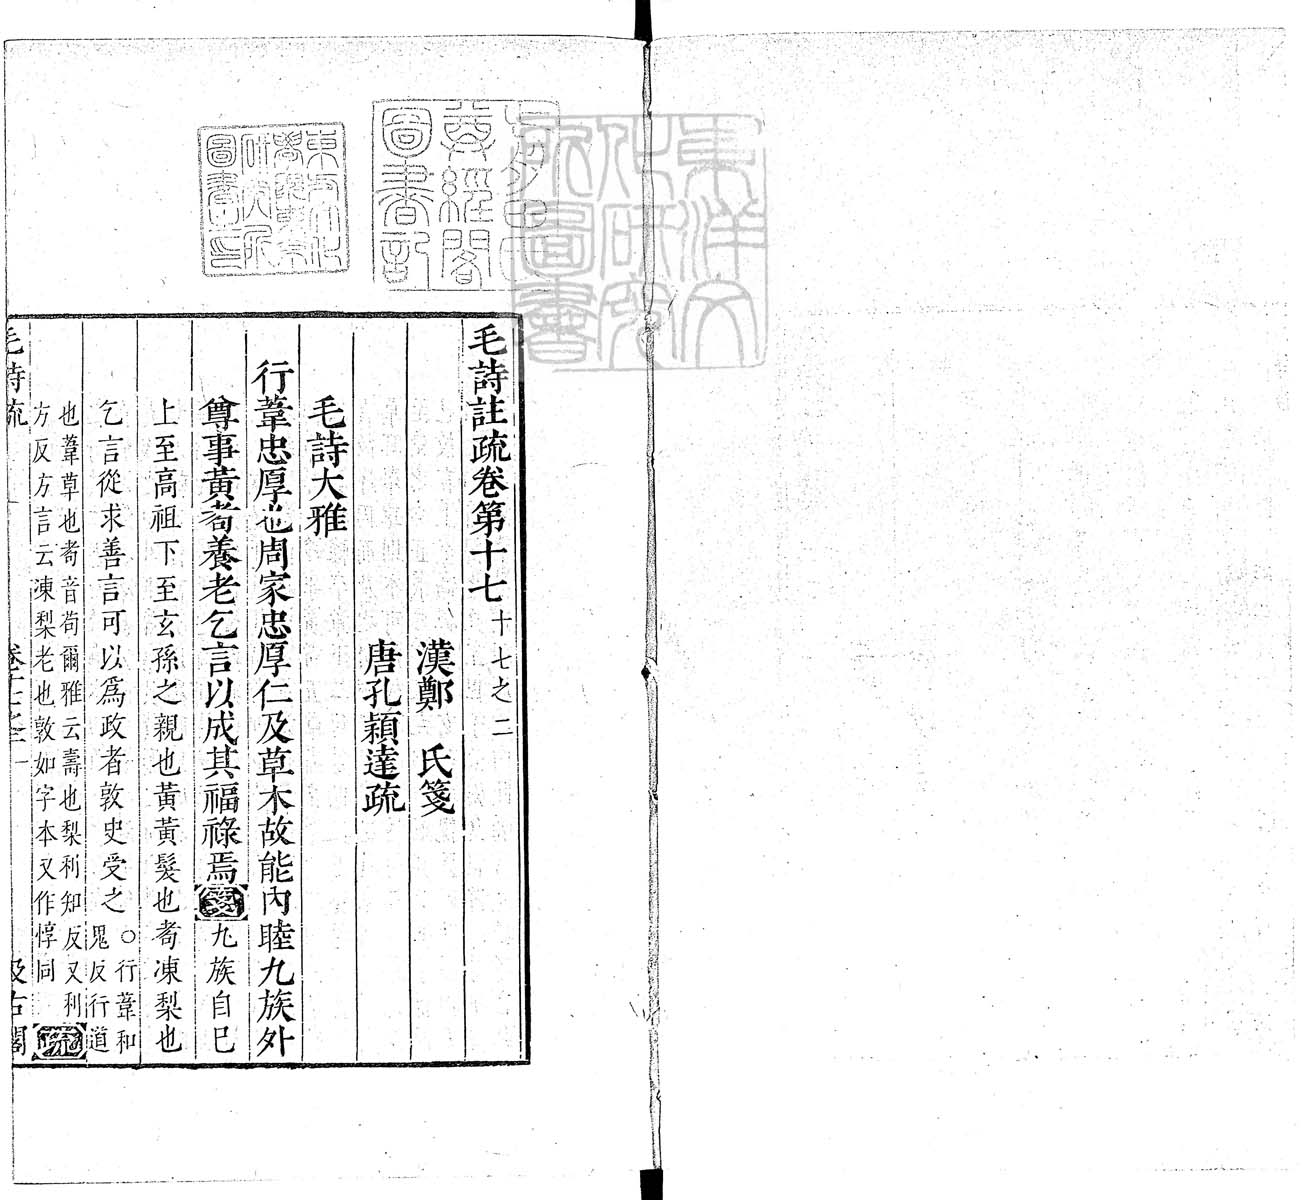 毛詩註疏卷第十七 十七之二
漢鄭 氏箋
唐孔穎達疏
毛詩大雅
行葦忠厚也周家忠厚仁及草木故能內睦九族外
尊事黃耇養老乞言以成其福祿焉 箋 九族自己
上至高祖下至玄孫之親也黃黃髮也耇凍梨也
乞言從求善言可以爲政者敦史受之 ○行葦和
鬼反行道
也葦草也耇音苟爾雅云壽也梨利知反又利
方反方言云凍梨老也敦如字本又作惇同 疏
毛詩疏 卷十七之二 一 汲古閣
東洋文化研究所圖書
尊經閣
圖書記
東方文化
學院東京
研究所
圖書之印